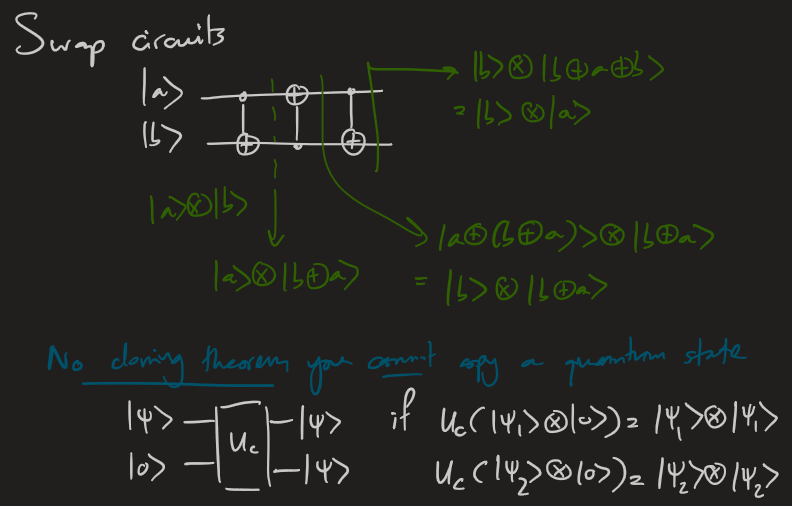 Swap circuits
|a>
|b>
|b> ⊗ |b ⊕ a ⊕ b>
= |b> ⊗ |a>
|a> ⊗ |b>
|a> ⊗ |b ⊕ a>
|a ⊕ (b ⊕ a)> ⊗ |b ⊕ a>
= |b> ⊗ |b ⊕ a>
No cloning theorem you cannot copy a quantum state
|ψ> U_c |ψ>
|0> |ψ>
if U_c(|ψ_1> ⊗ |0>) = |ψ_1> ⊗ |ψ_1>
U_c(|ψ_2> ⊗ |0>) = |ψ_2> ⊗ |ψ_2>